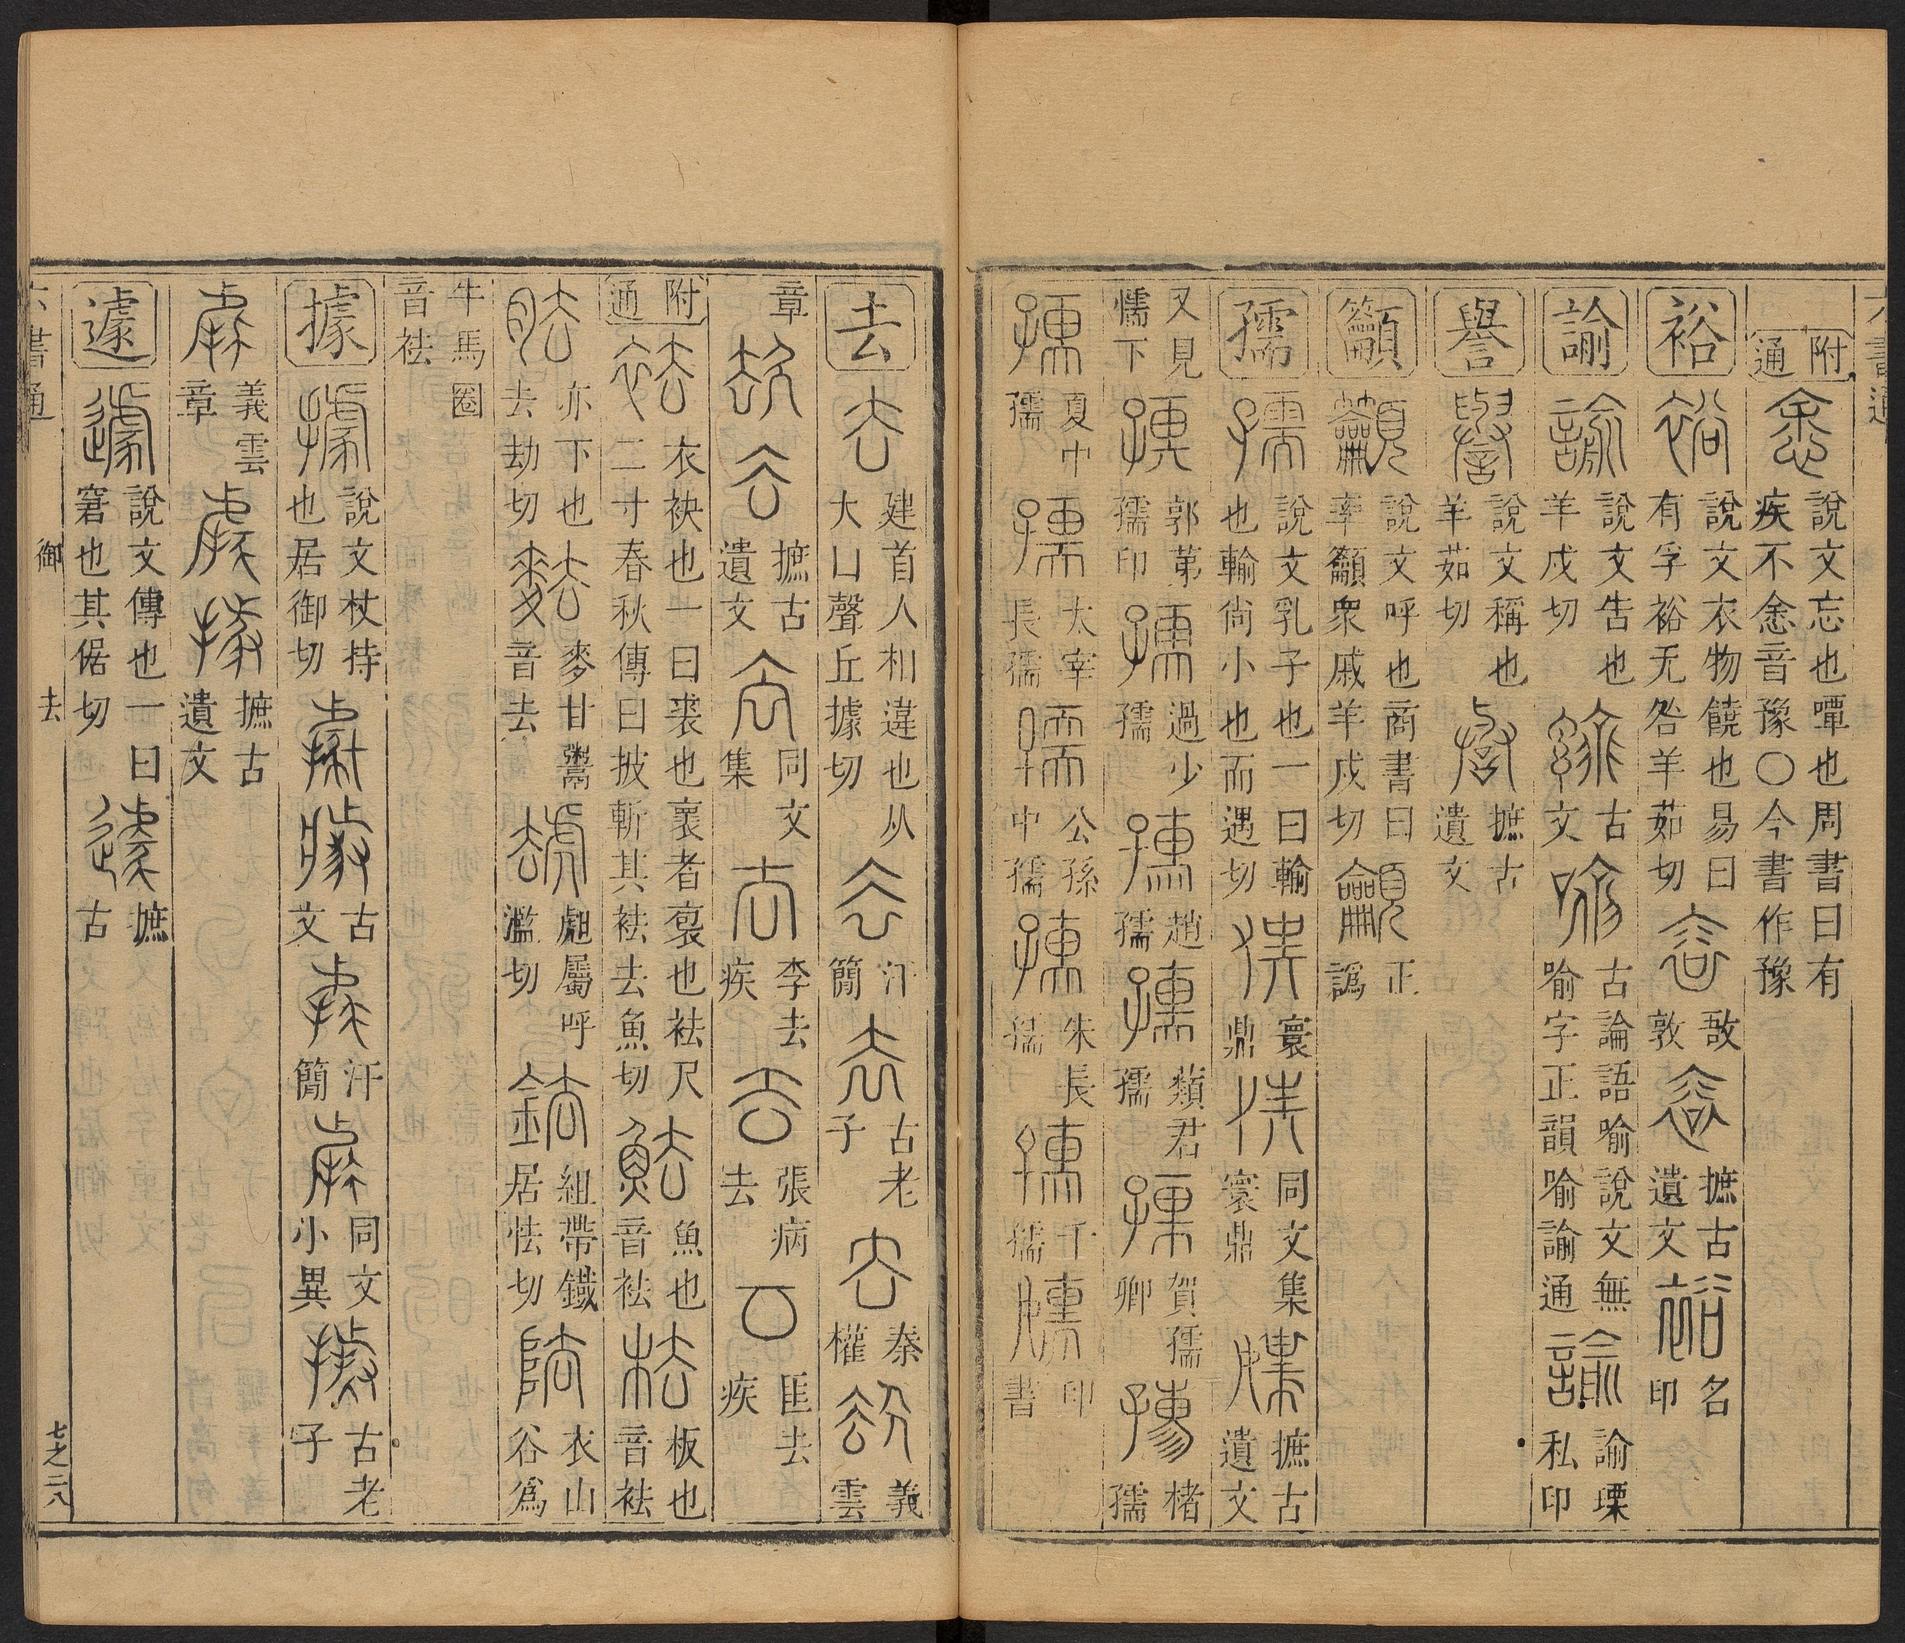 六書通
附通 悆 說文忘也嘾也周書曰有疾不悆悆音豫〇今書作豫
裕 裕 說文衣物饒也易曰有孚裕无咎羊茹切 敦敔 摭古遺文 名印
諭 諭 說文告也羊戍切 古文 古論語喻說文無喻字正韻喻諭通 諭瑮私印
譽 譽 說文稱也羊茹切 摭古遺文
籲 籲 說文呼也商書曰率籲衆戚羊戍切 正譌
孺 孺 說文乳子也一曰輸也輸尚小也而遇切 寰鼎 同文集 寰鼎 摭古遺文
又見懦下 郭苐孺印 過少孺 趙孺 蘋君孺 賀孺卿 楮孺
夏中孺 太宰長孺 公孫中孺 朱長孺 千孺 印書
去 去 建首人相違也从大凵聲丘據切 汗簡 古老子 秦權 義雲
章 摭古遺文 同文集 李去疾 張病去 匡去疾
附通 袪 衣袂也一曰裘也褱者褢也袪尺二寸春秋傳曰披斬其袪去魚切 魼 魚也音袪 板也音袪
亦下也去劫切 麥甘鬻音去 虪屬呼濫切 組帶鐵居怯切 衣山谷爲
牛馬圈音袪
據 據 說文杖持也居御切 古文 汗簡 同文小異 古老子
義雲章 摭古遺文
遽 遽 說文傳也一曰窘也其倨切 摭古
六書通 御 去 七之二八